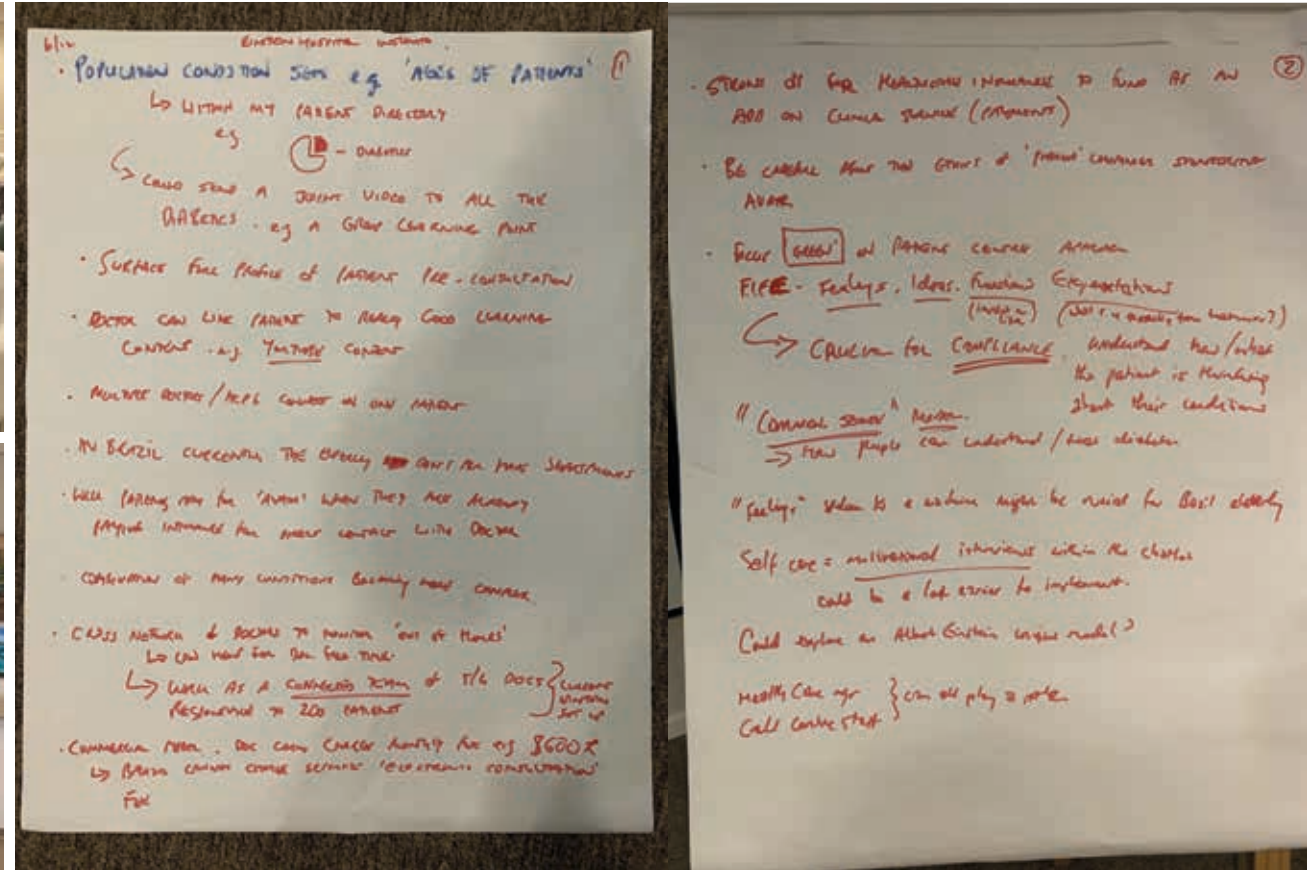 6/12 EINSTEIN HOSPITAL INSIGHTS
· POPULATION CONDITION SETS eg 'AGES OF PATIENTS' 1
↳ WITHIN MY PATIENT DIRECTORY
eg
- DIABETICS
↳ COULD SEND A JOINT VIDEO TO ALL THE
DIABETICS . eg A GROUP LEARNING POINT
· SURFACE FULL PROFILE OF PATIENT PRE-CONSULTATION
· DOCTOR CAN LINK PATIENT TO REALLY GOOD LEARNING
CONTENT . e.g. YOUTUBE CONTENT
· MULTIPLE DOCTORS / HCPS CONNECT ON ONE PATIENT
· IN BRAZIL CURRENTLY THE ELDERLY DON'T ALL HAVE SMARTPHONES
· WILL PATIENTS PAY FOR 'AVATAR' WHEN THEY ARE ALREADY
PAYING INSURANCE FOR MORE CONTACT WITH DOCTOR
· COMBINATION OF MANY CONDITIONS BECOMING MORE COMPLEX
· CROSS NETWORK OF DOCTORS TO MONITOR 'OUT OF HOURS'
↳ CAN HELP FOR DOC FREE TIME.
↳ WORK AS A CONNECTED TEAM OF 5/6 DOCS } CURRENT
RESPONSIBLE TO 200 PATIENTS
SET UP
· COMMERCIAL MODEL . DOC CAN CHARGE MONTHLY FEE eg
↳ BRAZIL CANNOT CHARGE SEPARATE 'ELECTRONIC CONSULTATION'
FEE
2
· STRONG FOR HEALTHCARE INSURANCE TO FUND AS AN
ADD ON CLINICAL SERVICE (PAYMENTS)
· BE CAREFUL ABOUT THE ETHICS OF
AVATAR
· FOCUS ON PATIENT CENTRED APPROACH
FIFE - Feelings, Ideas, Functions Expectations
↳ CRUCIAL for COMPLIANCE. understand how/what
the patient is thinking
about their conditions
"COMMON SENSE"
→ How people can understand /
"Feelings" might be crucial for Brazil elderly
Self care = motivational interviews within the chatbot
could be a lot easier to implement.
Could explore an Albert Einstein unique model?
Health Care mgr } can all play a role
Call centre staff